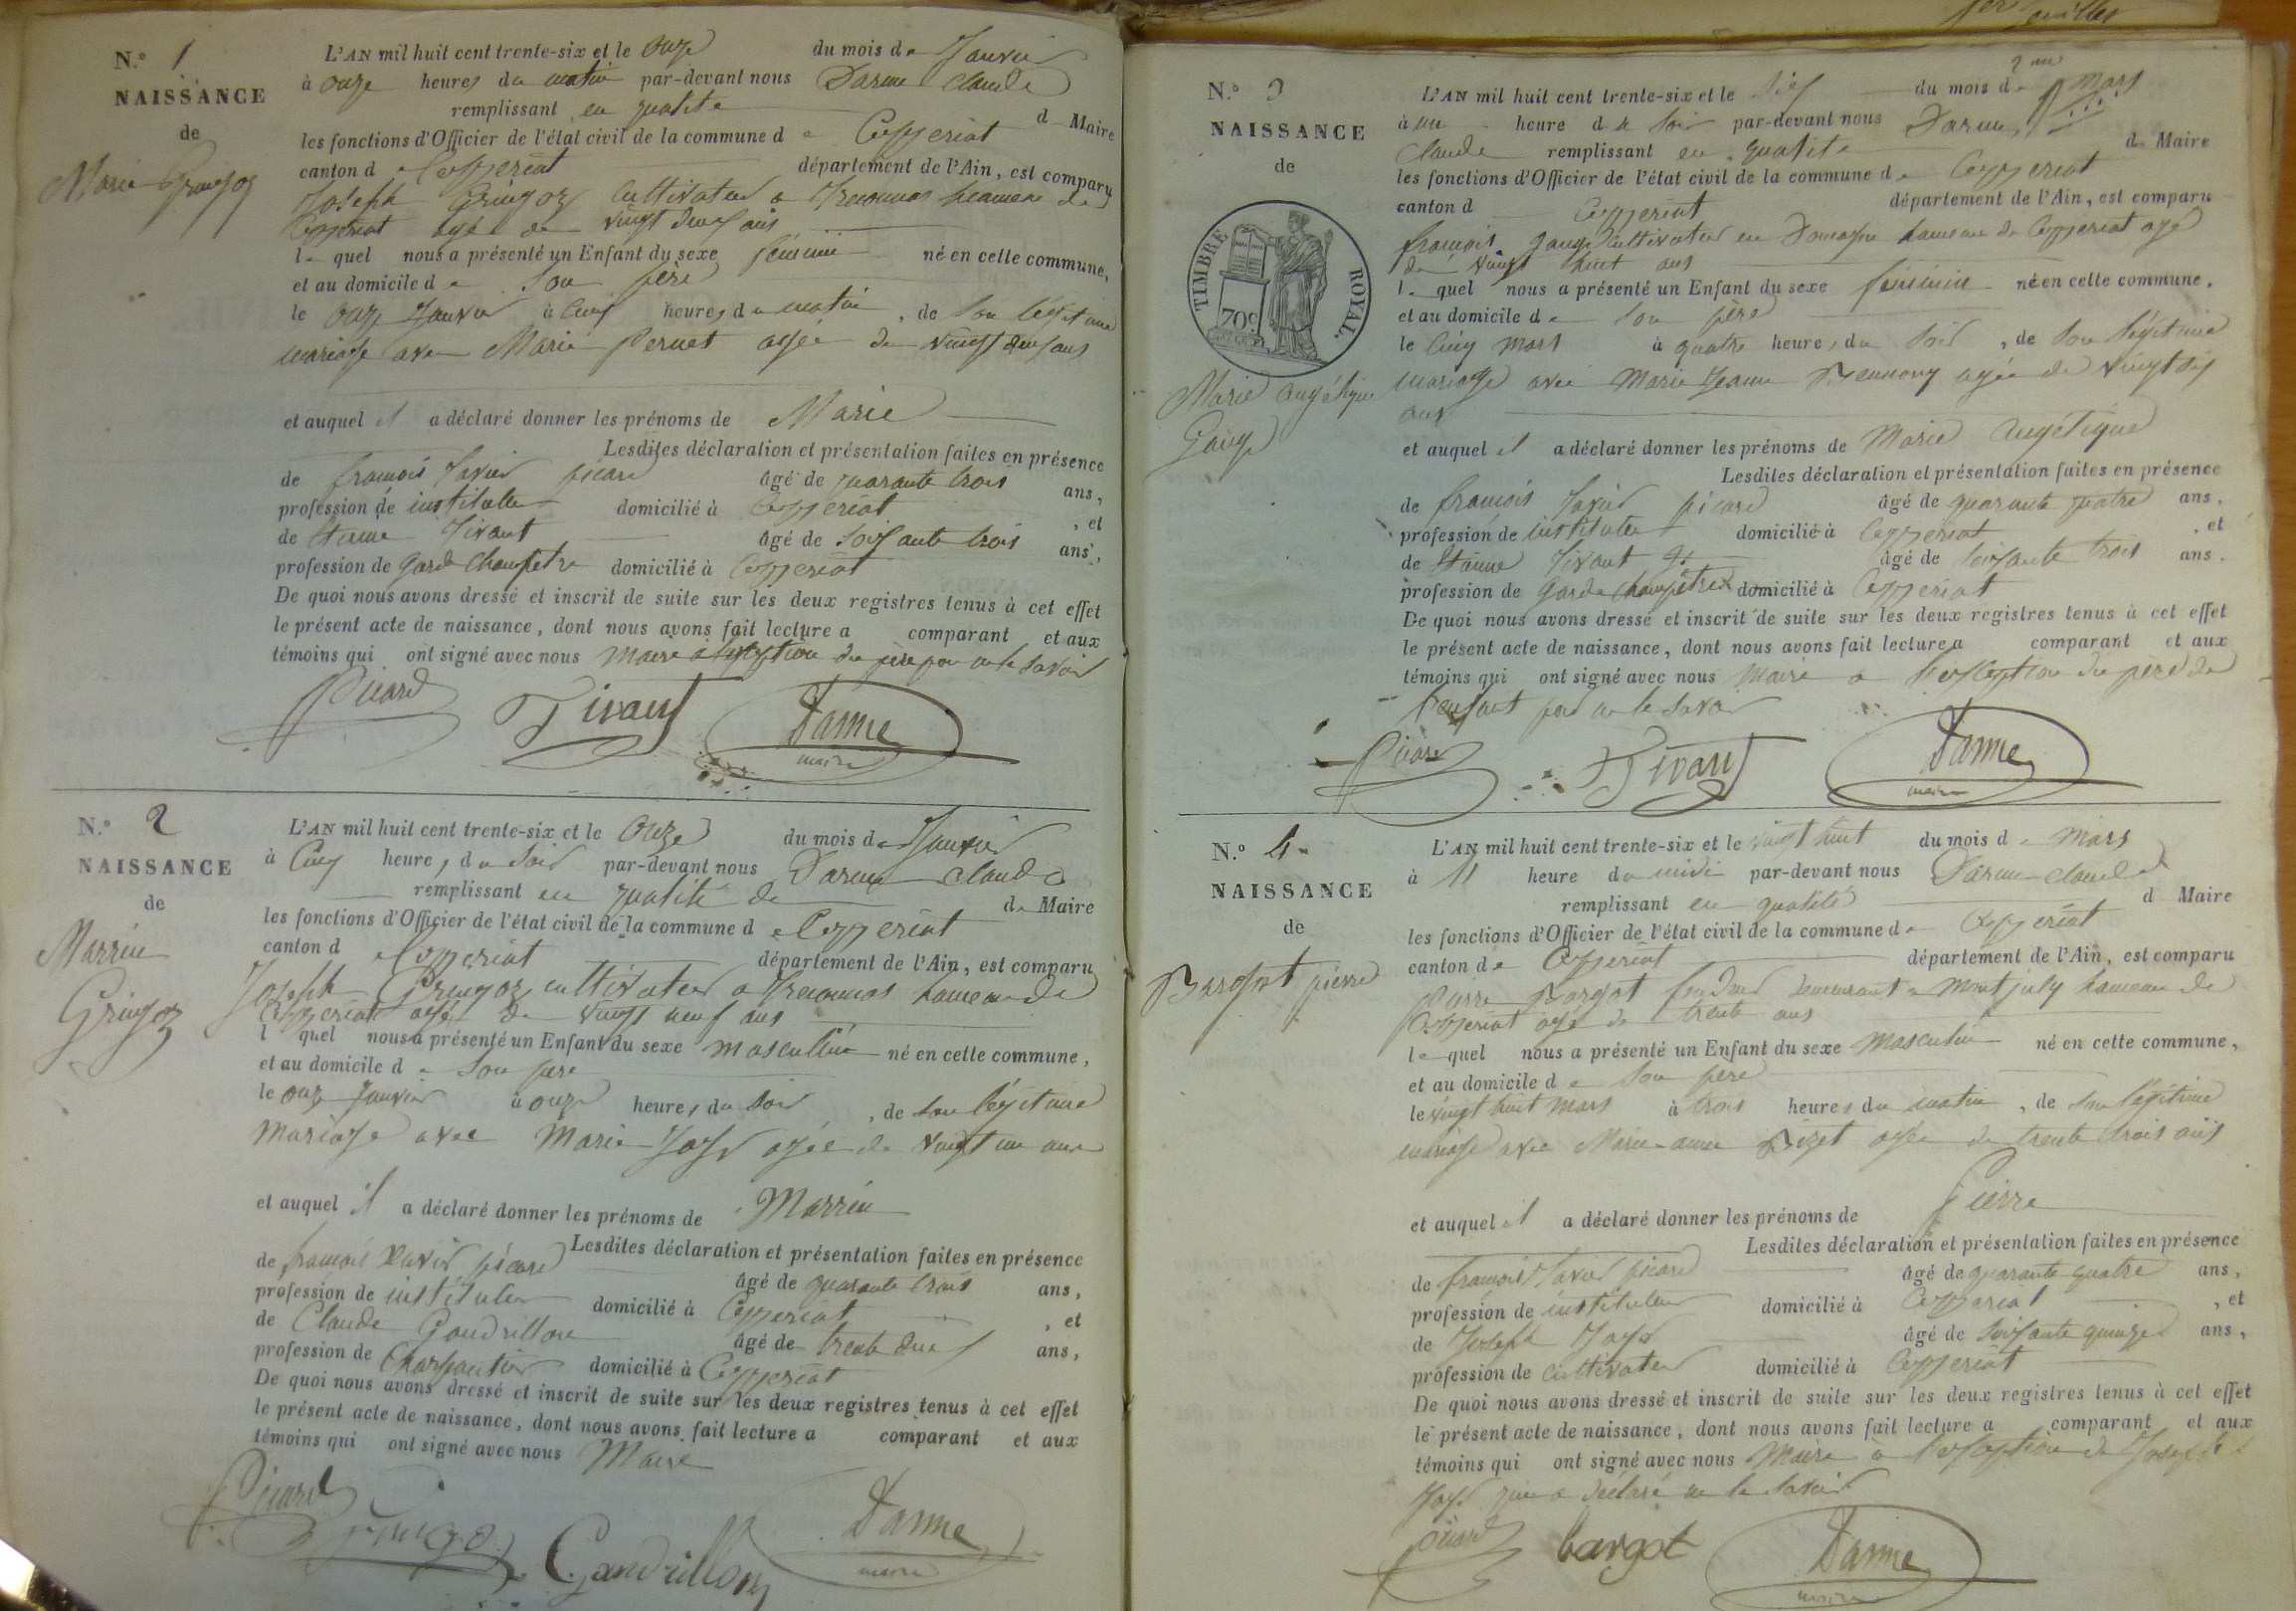 N.º 1
NAISSANCE
de
Marie Gringoz
L'AN mil huit cent trente-six et le onze du mois de Janvier
à onze heures du matin par-devant nous Darme Claude
remplissant en qualité d Maire
les fonctions d'Officier de l'état civil de la commune de Ceyzeriat
canton de Ceyzeriat département de l'Ain, est comparu
Joseph Gringoz Cultivateur a hameau de
Ceyzeriat agé de vingt ans
le quel nous a présenté un Enfant du sexe féminin né en cette commune,
et au domicile de son père
le onze Janvier à cinq heures du matin, de son légitime
mariage avec Marie Pernet agée de vingt ans
et auquel il a déclaré donner les prénoms de Marie
Lesdites déclaration et présentation faites en présence
de françois Xavier picard âgé de quarante trois ans,
profession de instituteur domicilié à Ceyzeriat, et
de Tivant âgé de soixante trois ans,
profession de garde Champetre domicilié à Ceyzeriat
De quoi nous avons dressé et inscrit de suite sur les deux registres tenus à cet effet
le présent acte de naissance, dont nous avons fait lecture a comparant et aux
témoins qui ont signé avec nous Maire a du père pour ne le savoir
Picard Tivant Darme
maire
N.º 2
NAISSANCE
de
Marrin
Gringoz
L'AN mil huit cent trente-six et le onze du mois de Janvier
à Cinq heures du soir par-devant nous Darme Claude
remplissant en qualité de de Maire
les fonctions d'Officier de l'état civil de la commune de Ceyzeriat
canton d Ceyzeriat département de l'Ain, est comparu
Joseph Gringoz cultivateur a hameau de
Ceyzeriat agé de vingt neuf ans
l quel nous a présenté un Enfant du sexe masculin né en cette commune,
et au domicile de son père
le onze Janvier à onze heures du soir, de son légitime
mariage avec Marie agée de vingt un ans
et auquel il a déclaré donner les prénoms de Marrin
Lesdites déclaration et présentation faites en présence
de françois Xavier picard âgé de quarante trois ans,
profession de instituteur domicilié à Ceyzeriat, et
de Claude Gandrillon âgé de trente deux ans,
profession de Charpentier domicilié à Ceyzeriat
De quoi nous avons dressé et inscrit de suite sur les deux registres tenus à cet effet
le présent acte de naissance, dont nous avons fait lecture a comparant et aux
témoins qui ont signé avec nous Maire
Picard Gringoz Gandrillon Darme
maire
N.º 3
NAISSANCE
de
TIMBRE ROYAL.
70c
Marie angélique
L'AN mil huit cent trente-six et le six du mois de mars
à un heure du soir par-devant nous Darme
Claude remplissant en qualité de Maire
les fonctions d'Officier de l'état civil de la commune de Ceyzeriat
canton d Ceyzeriat département de l'Ain, est comparu
françois cultivateur en hameau de Ceyzeriat agé
de vingt huit ans
le quel nous a présenté un Enfant du sexe féminin né en cette commune.
et au domicile de son père
le cinq mars à quatre heures du soir, de son légitime
mariage avec Marie Jeanne agée de vingt six
ans
et auquel il a déclaré donner les prénoms de Marie Angélique
Lesdites déclaration et présentation faites en présence
de françois Xavier picard âgé de quarante quatre ans.
profession de instituteur domicilié à Ceyzeriat, et
de Tivant âgé de soixante trois ans.
profession de garde champêtre domicilié à Ceyzeriat
De quoi nous avons dressé et inscrit de suite sur les deux registres tenus à cet effet
le présent acte de naissance, dont nous avons fait lecture a comparant et aux
témoins qui ont signé avec nous Maire a l'exception du père de
l'enfant pour ne le savoir
Picard Tivant Darme
maire
N.º 4
NAISSANCE
de
pierre
L'AN mil huit cent trente-six et le vingt huit du mois de Mars
à 11 heure du midi par-devant nous Darme Claude
remplissant en qualité d Maire
les fonctions d'Officier de l'état civil de la commune de Ceyzeriat
canton de Ceyzeriat département de l'Ain, est comparu
pierre Bargot demeurant a Montjuly hameau de
Ceyzeriat agé de trente ans
le quel nous a présenté un Enfant du sexe masculin né en cette commune,
et au domicile de son père
le vingt huit mars à trois heures du matin, de son légitime
mariage avec Marie anne agée de trente trois ans
et auquel il a déclaré donner les prénoms de Pierre
Lesdites déclaration et présentation faites en présence
de françois Xavier picard âgé de quarante quatre ans,
profession de instituteur domicilié à Ceyzeriat, et
de Joseph âgé de soixante quinze ans,
profession de cultivateur domicilié à Ceyzeriat
De quoi nous avons dressé et inscrit de suite sur les deux registres tenus à cet effet
le présent acte de naissance, dont nous avons fait lecture a comparant et aux
témoins qui ont signé avec nous Maire a l'exception de Joseph
qui a déclaré ne le savoir
Picard bargot Darme
maire